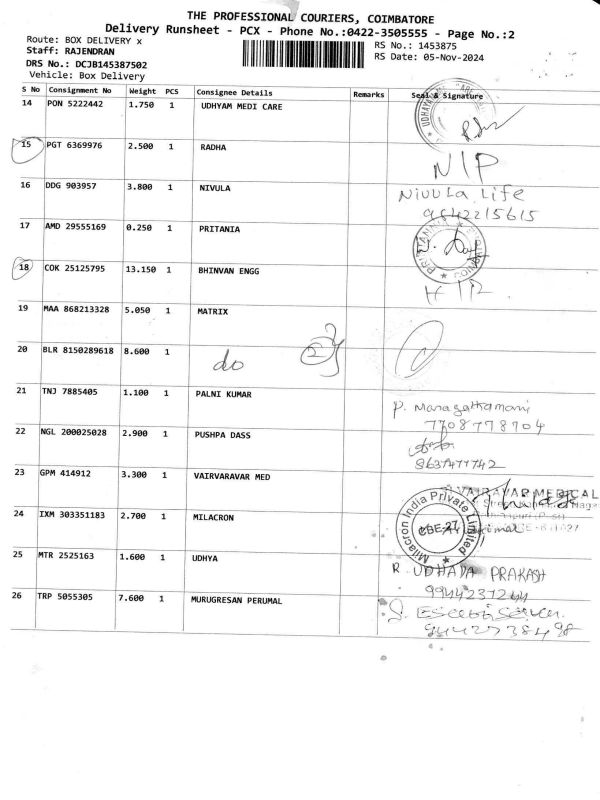 THE PROFESSIONAL COURIERS, COIMBATORE
Delivery Runsheet - PCX - Phone No.:0422-3505555 - Page No.:2
Route: BOX DELIVERY x
RS No.: 1453875
Staff: RAJENDRAN
RS Date: 05-Nov-2024
DRS No.: DCJB145387502
Vehicle: Box Delivery
S No Consignment No Weight PCS Consignee Details Remarks Seal & Signature
14 PON 5222442 1.750 1 UDHYAM MEDI CARE
15 PGT 6369976 2.500 1 RADHA NIP
16 DDG 903957 3.800 1 NIVULA Nivula Life
9842215615
17 AMD 29555169 0.250 1 PRITANIA
18 COK 25125795 13.150 1 BHINVAN ENGG
19 MAA 868213328 5.050 1 MATRIX
20 BLR 8150289618 8.600 1 do 2
21 TNJ 7885405 1.100 1 PALNI KUMAR P. Maragathamani
7708778704
22 NGL 200025028 2.900 1 PUSHPA DASS
8637477742
23 GPM 414912 3.300 1 VAIRVARAVAR MED VAIRAVAR MEDICAL
24 IXM 303351183 2.700 1 MILACRON Milacron India Private Limited
CBE-27
25 MTR 2525163 1.600 1 UDHYA R. UDHAYA PRAKASH
9944237244
26 TRP 5055305 7.600 1 MURUGRESAN PERUMAL
9442738498